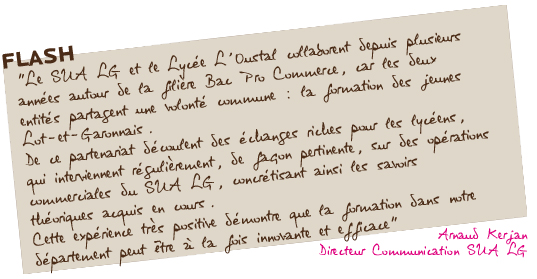 FLASH
"Le SUA LG et le Lycée L'Oustal collaborent depuis plusieurs
années autour de la filière Bac Pro Commerce, car les deux
entités partagent une volonté commune : la formation des jeunes
Lot-et-Garonnais.
De ce partenariat découlent des échanges riches pour les lycéens,
qui interviennent régulièrement, de façon pertinente, sur des opérations
commerciales du SUA LG, concrétisant ainsi les savoirs
théoriques acquis en cours.
Cette expérience très positive démontre que la formation dans notre
département peut être à la fois innovante et efficace"
Arnaud Kerjan
Directeur Communication SUA LG